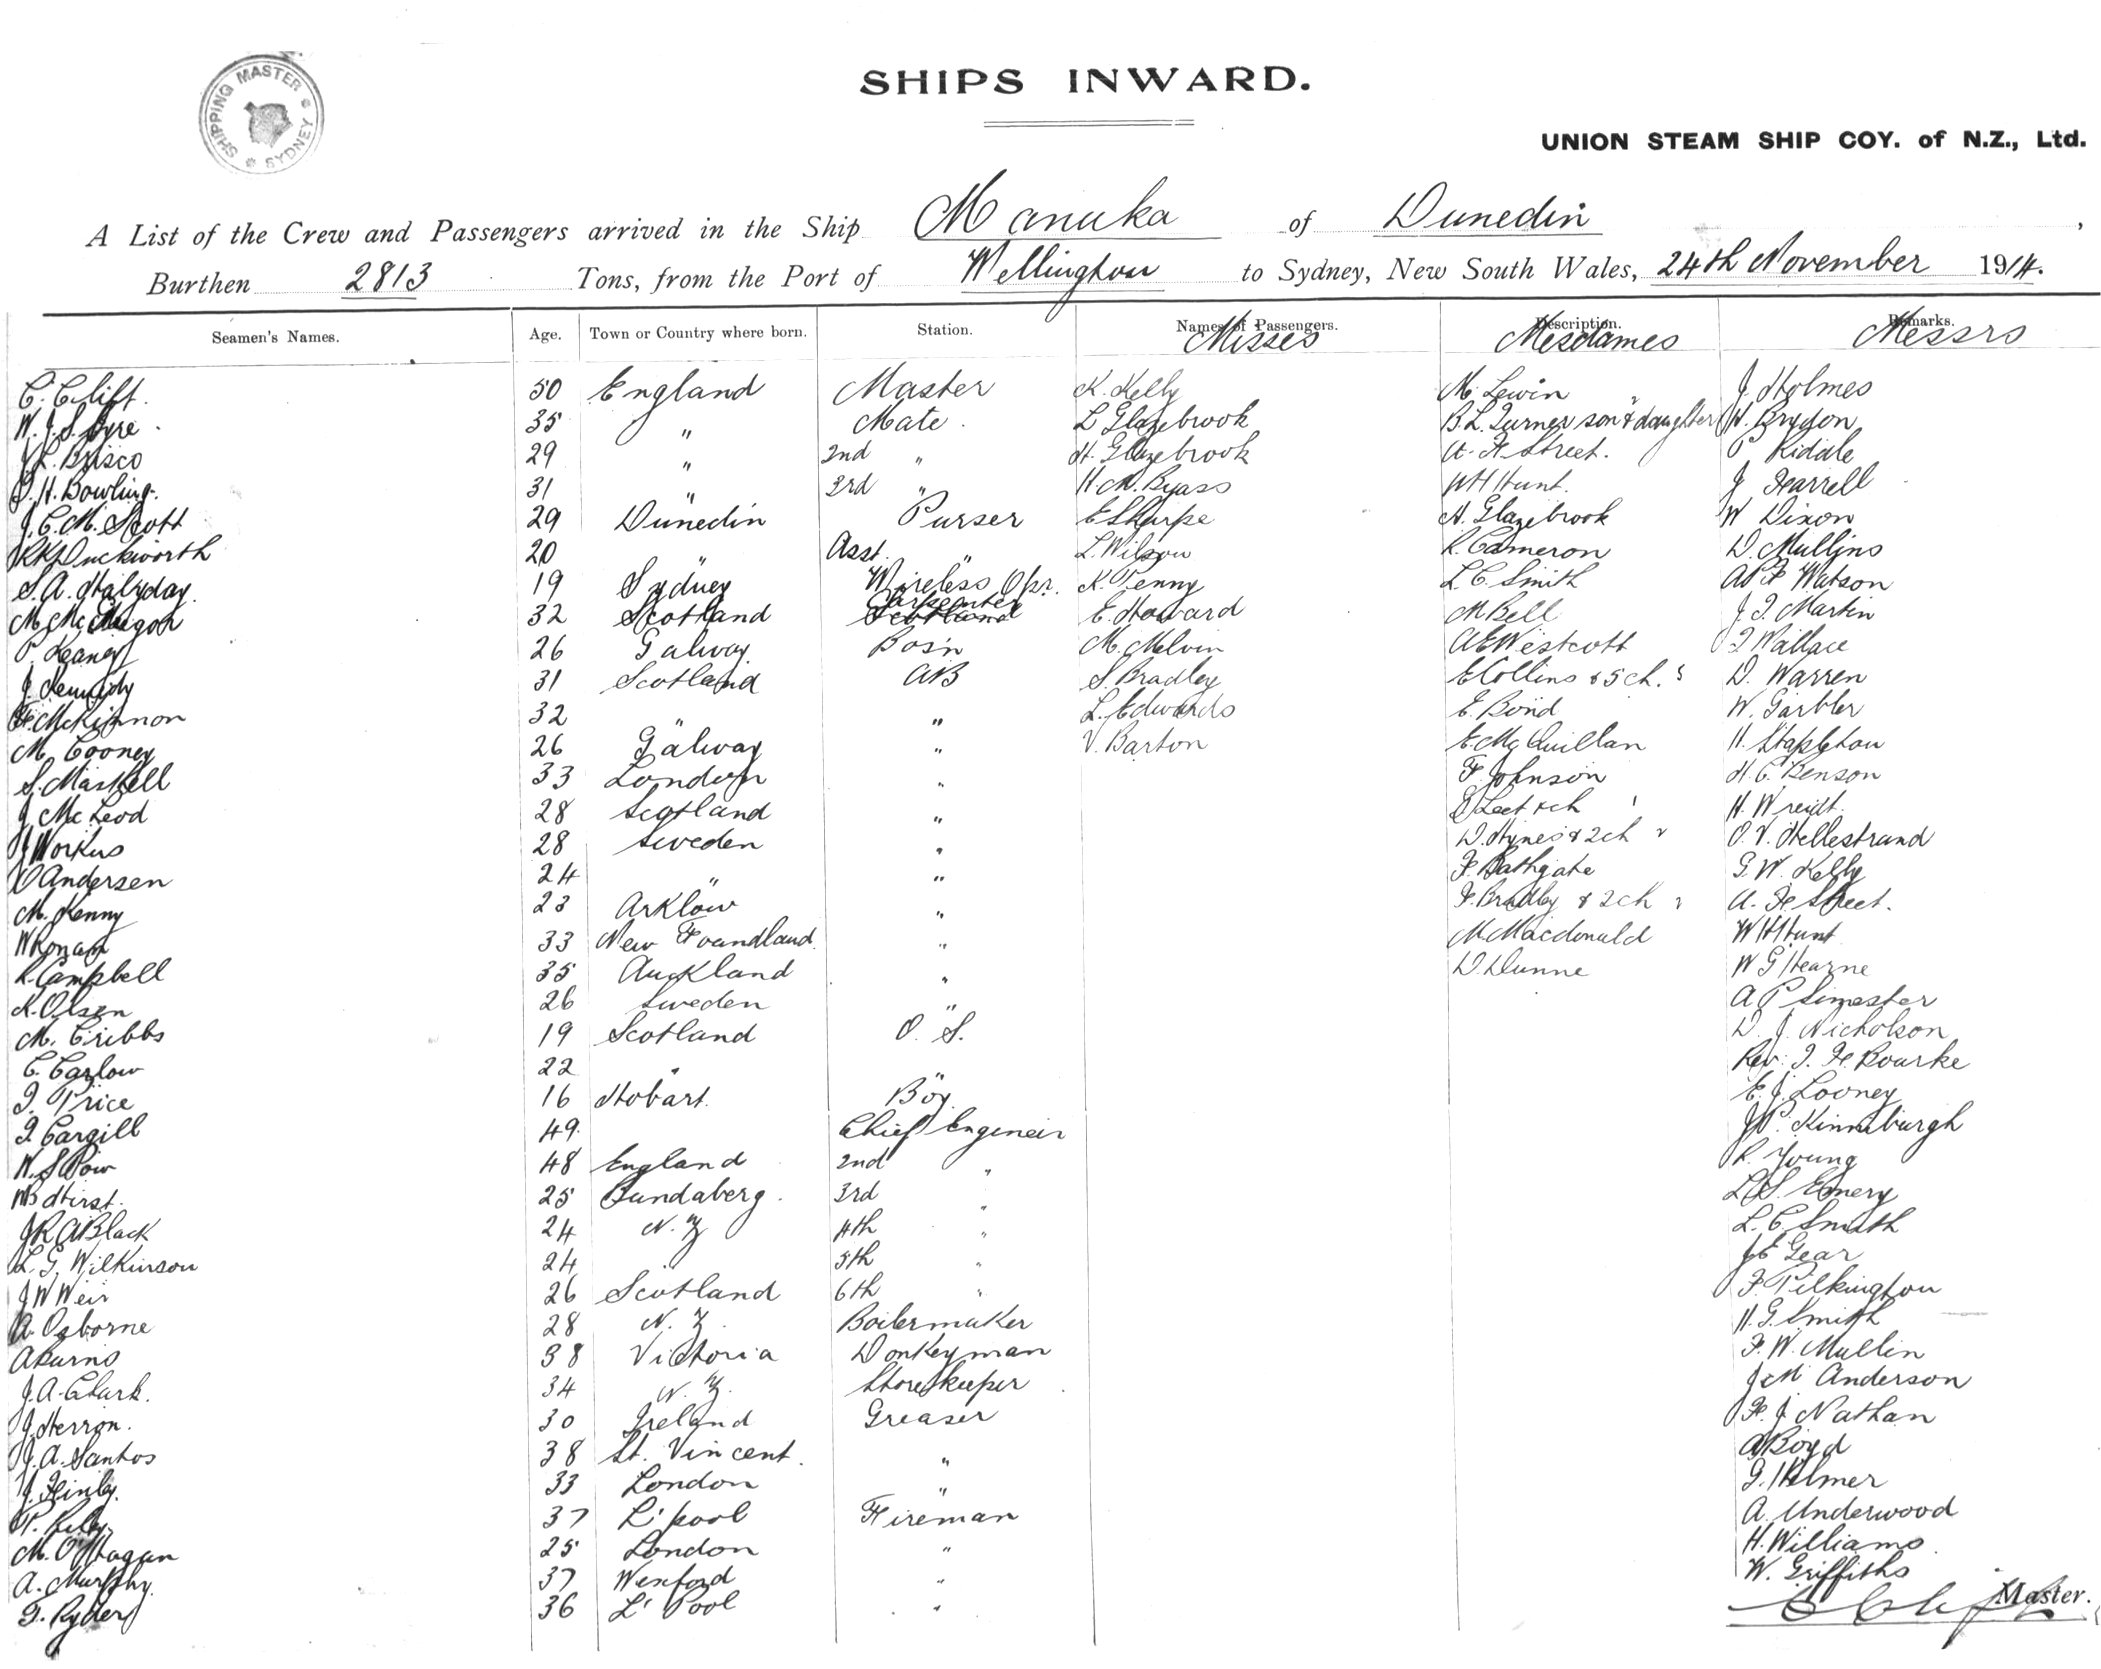 SHIPPING MASTER * SYDNEY *
SHIPS INWARD.
UNION STEAM SHIP COY. of N.Z., Ltd.
A List of the Crew and Passengers arrived in the Ship Manuka of Dunedin,
Burthen 2813 Tons, from the Port of Wellington to Sydney, New South Wales, 24th November 1914.
Seamen's Names. Age. Town or Country where born. Station. Names of Passengers. Description. Remarks.
Misses Mesdames Messrs
C. Clift. 50 England Master K. Kelly M. Lewin J Holmes
W. J. S. Syre 35 " Mate. L Glazebrook B. L. Turner son & daughter W. Brydon
J L. Brisco 29 " 2nd " H. Glazebrook A. F. Street. P Riddle
T. H. Bowling. 31 " 3rd " H. M. Byass W H Hunt. J Farrell
J. C. M. Scott 29 Dunedin Purser E Sharpe H. Glazebrook W Dixon
R K Duckworth 20 " Asst. " L. Wilson R. Cameron D. Mullins
S. A. Halyday. 19 Sydney Wireless Opr. K. Penny L. C. Smith A P F Watson
M. 32 Scotland Carpenter E. Howard M Bell J. T. Martin
P. Leaney 26 Galway. Bos'n M. Melvin A E Westcott T Wallace
J. Kennedy 31 Scotland AB S. Bradley E Collins & 5 ch. 5 D. Warren
F. McKinnon 32 " " L. Edwards E. Bond W. Garbler
M. Cooney 26 Galway " V. Barton E. McQuillan H. Stapleton
S. Maskell 33 London " F. Johnson H. C. Benson
J McLeod 28 Scotland " Leet & ch 1 H. Wreidt.
J Workus 28 Sweden " D. Hynes & 2 ch 2 O. V. Hellestrand
D Andersen 24 " " F. Bathgate G. W. Kelly
M. Kenny 23 Arklow " F. Bradley & 2 ch 2 A. F. Street.
W Ronan 33 New Foundland. " M Macdonald W H Hunt
R. Campbell 35 Auckland " D. Dunne W G Hearne
K. Olsen 26 Sweden " A P Simester
M. Cribbs 19 Scotland O. S. D. J. Nicholson
C. Carlow 22 " " Rev. T. F. Bourke
T. Price 16 Hobart. Boy. E. J. Looney
T. Cargill 49. Chief Engineir J P. Kinniburgh
W. S Pow 48 England 2nd " R. Young
Hirst. 25 Bundaberg. 3rd " L S. Emery
J R A Black 24 N. Z 4th " L. C. Smith
L. G. Wilkinson 24 " 5th " J E Gear
J W Weir 26 Scotland 6th " F. Pilkington
A. Osborne 28 N. Z. Boilermaker H. G. Smith
A Burns 38 Victoria Donkeyman F. W. Mullin
J. A. Clark. 34 N. Z. Storekeeper J M Anderson
J. Herron. 30 Ireland Greaser F. J Nathan
J. A. Santos 38 St. Vincent. " A Boyd
J. Finlay. 33 London " G. Helmer
P. Riley. 37 L'pool Fireman A. Underwood
M. O'Hagan 25 London " H. Williams.
A. Murphy. 37 Wexford " W. Griffiths
G. Ryder 36 L'Pool " C Clift Master.